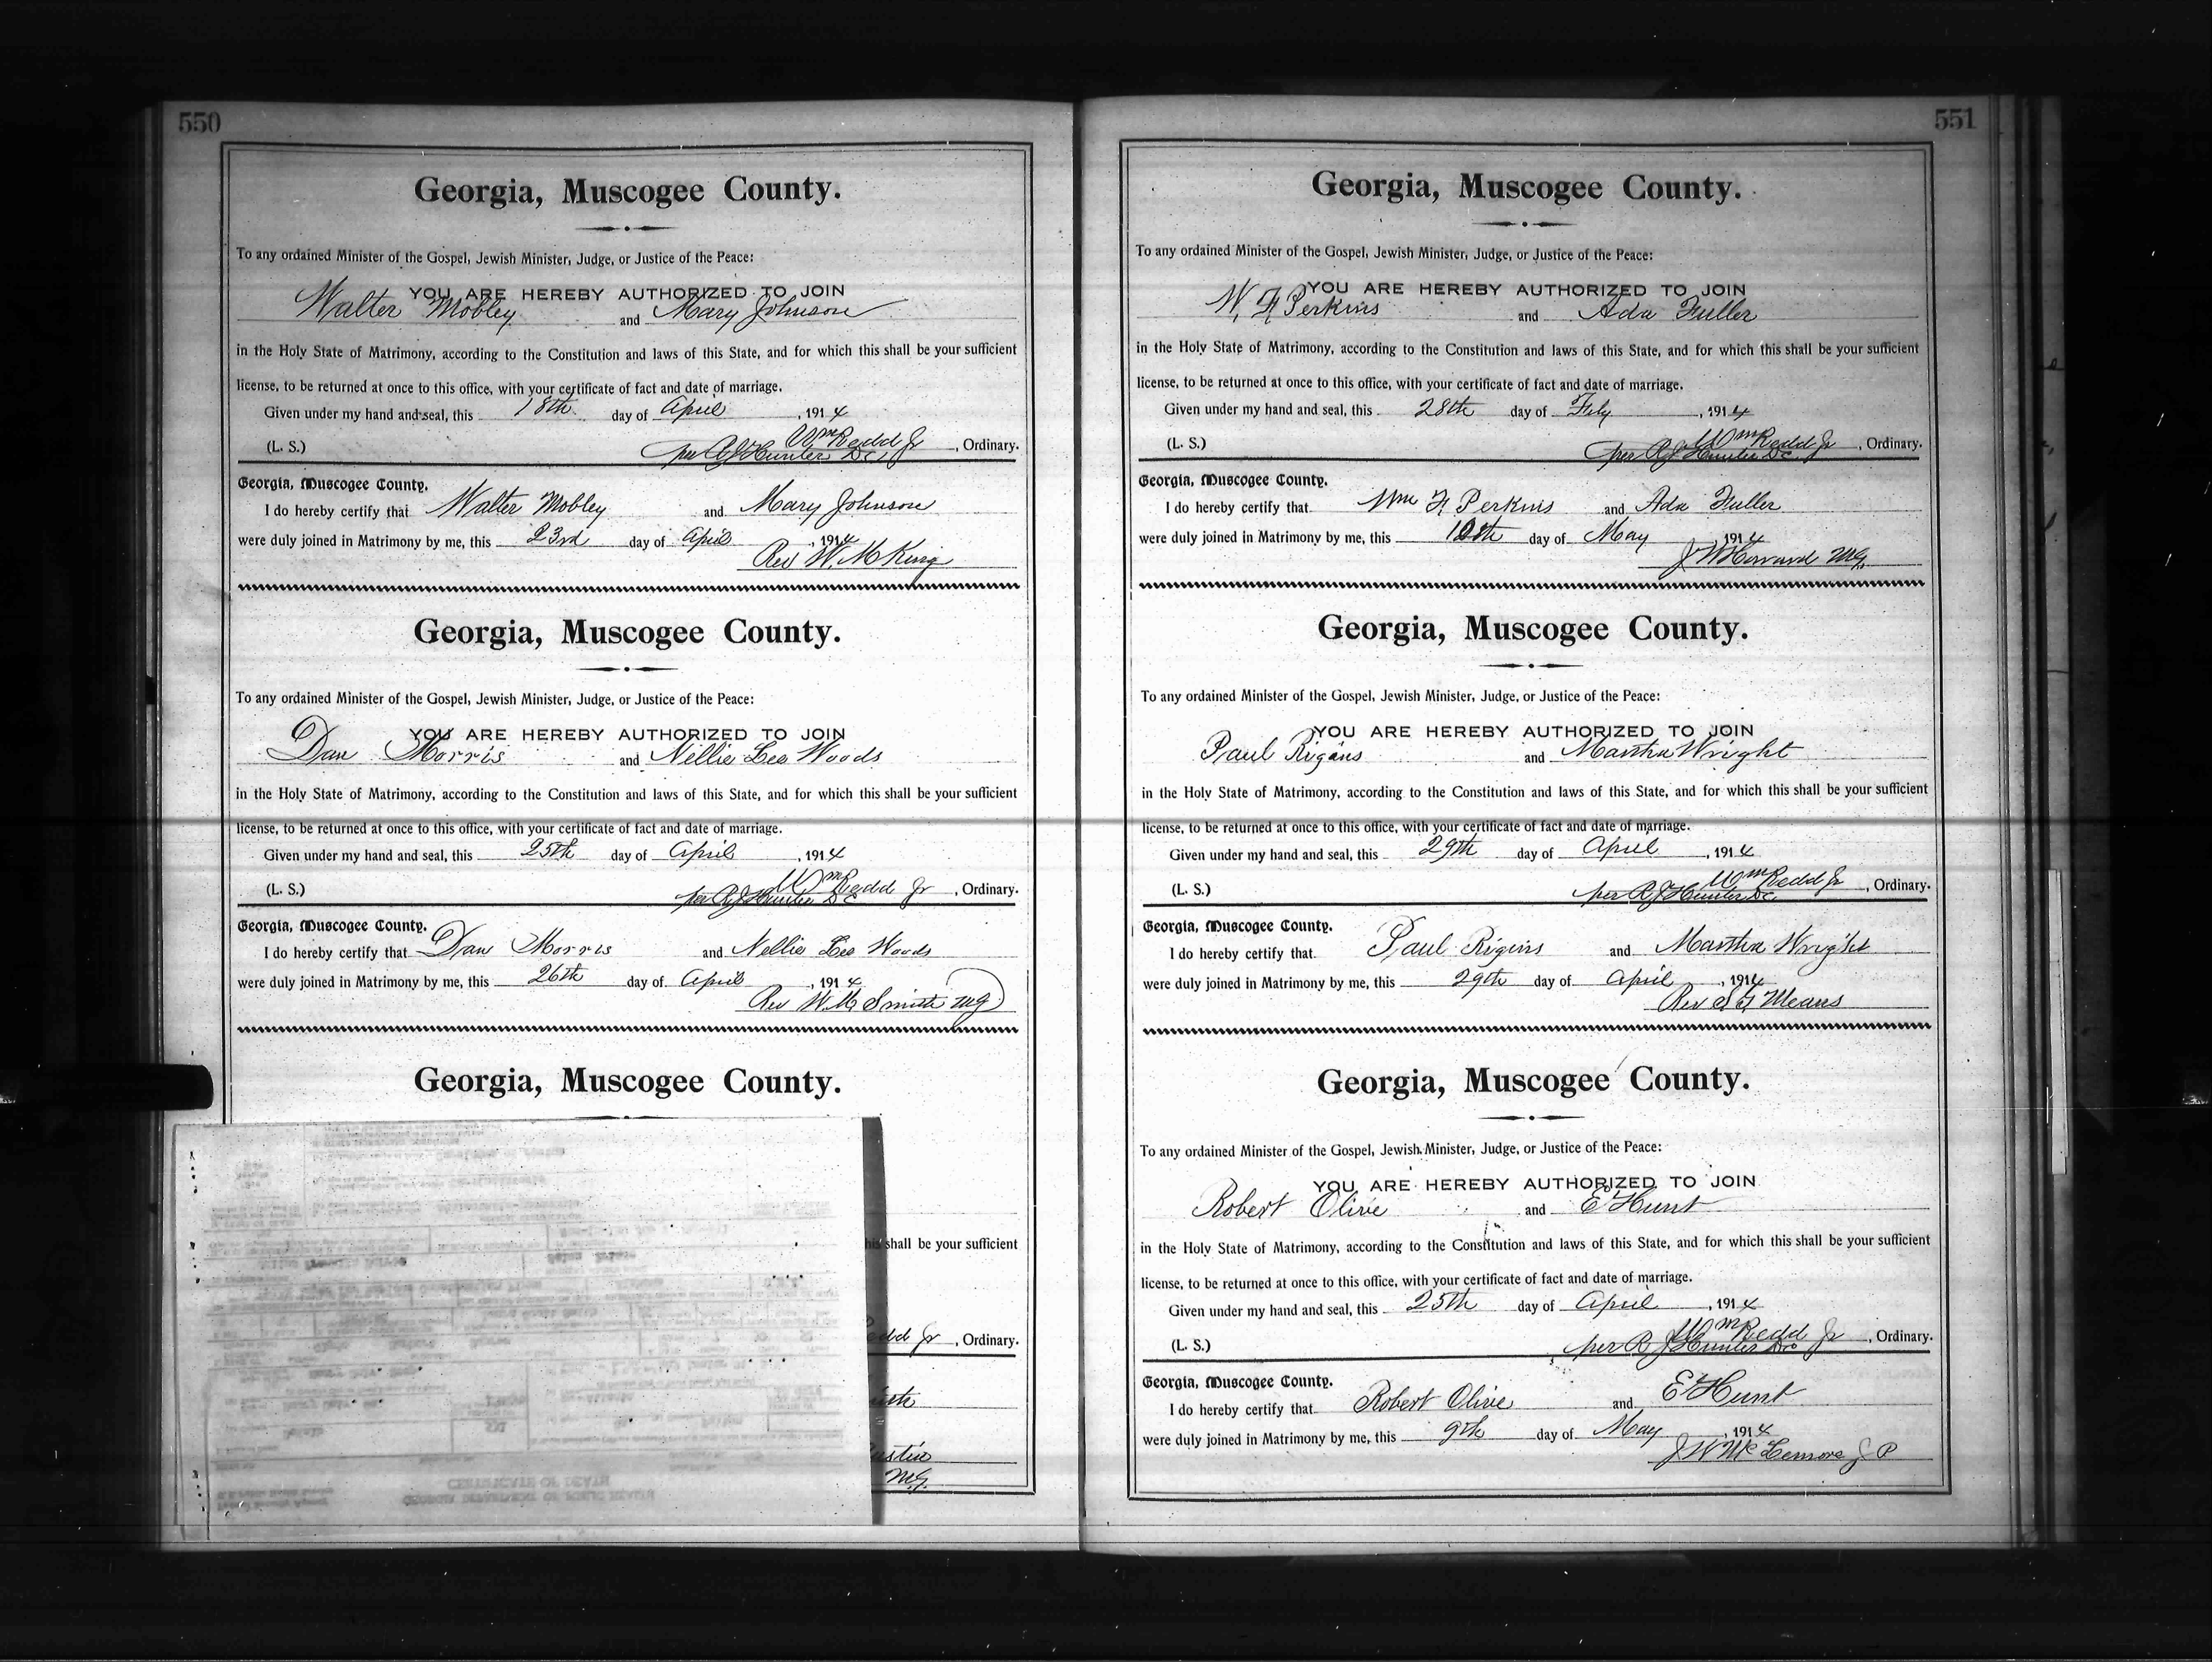 550
Georgia, Muscogee County.
To any ordained Minister of the Gospel, Jewish Minister, Judge, or Justice of the Peace:
YOU ARE HEREBY AUTHORIZED TO JOIN
Walter Mobley and Mary Johnson
in the Holy State of Matrimony, according to the Constitution and laws of this State, and for which this shall be your sufficient
license, to be returned at once to this office, with your certificate of fact and date of marriage.
Given under my hand and seal, this 18th day of April, 1914
(L. S.) Wm Redd Jr, Ordinary.
per RJ Hunter DC
Georgia, Muscogee County.
I do hereby certify that Walter Mobley and Mary Johnson
were duly joined in Matrimony by me, this 23rd day of April, 1914
Rev W. M King
Georgia, Muscogee County.
To any ordained Minister of the Gospel, Jewish Minister, Judge, or Justice of the Peace:
YOU ARE HEREBY AUTHORIZED TO JOIN
Dan Morris and Nellie Lee Woods
in the Holy State of Matrimony, according to the Constitution and laws of this State, and for which this shall be your sufficient
license, to be returned at once to this office, with your certificate of fact and date of marriage.
Given under my hand and seal, this 25th day of April, 1914
(L. S.) Wm Redd Jr, Ordinary.
per RJ Hunter DC
Georgia, Muscogee County.
I do hereby certify that Dan Morris and Nellie Lee Woods
were duly joined in Matrimony by me, this 26th day of April, 1914
Rev W. M Smith MG
Georgia, Muscogee County.
his shall be your sufficient
edd Jr, Ordinary.
MG.
CERTIFICATE OF DEATH
GEORGIA DEPARTMENT OF PUBLIC HEALTH
551
Georgia, Muscogee County.
To any ordained Minister of the Gospel, Jewish Minister, Judge, or Justice of the Peace:
YOU ARE HEREBY AUTHORIZED TO JOIN
W. F Perkins and Ada Fuller
in the Holy State of Matrimony, according to the Constitution and laws of this State, and for which this shall be your sufficient
license, to be returned at once to this office, with your certificate of fact and date of marriage.
Given under my hand and seal, this 28th day of Fely, 1914
(L. S.) Wm Redd Jr, Ordinary.
per RJ Hunter DC.
Georgia, Muscogee County.
I do hereby certify that Wm F Perkins and Ada Fuller
were duly joined in Matrimony by me, this 10th day of May, 1914
J W Howard MG.
Georgia, Muscogee County.
To any ordained Minister of the Gospel, Jewish Minister, Judge, or Justice of the Peace:
YOU ARE HEREBY AUTHORIZED TO JOIN
Paul Rigins and Martha Wright
in the Holy State of Matrimony, according to the Constitution and laws of this State, and for which this shall be your sufficient
license, to be returned at once to this office, with your certificate of fact and date of marriage.
Given under my hand and seal, this 29th day of April, 1914
(L. S.) Wm Redd Jr, Ordinary.
per RJ Hunter DC.
Georgia, Muscogee County.
I do hereby certify that Paul Rigins and Martha Wright
were duly joined in Matrimony by me, this 29th day of April, 1914
Rev S G Means
Georgia, Muscogee County.
To any ordained Minister of the Gospel, Jewish Minister, Judge, or Justice of the Peace:
YOU ARE HEREBY AUTHORIZED TO JOIN
Robert Olive and E Hunt
in the Holy State of Matrimony, according to the Constitution and laws of this State, and for which this shall be your sufficient
license, to be returned at once to this office, with your certificate of fact and date of marriage.
Given under my hand and seal, this 25th day of April, 1914
(L. S.) Wm Redd Jr, Ordinary.
per RJ Hunter DC
Georgia, Muscogee County.
I do hereby certify that Robert Olive and E Hunt
were duly joined in Matrimony by me, this 9th day of May, 1914
J W McLemore J P